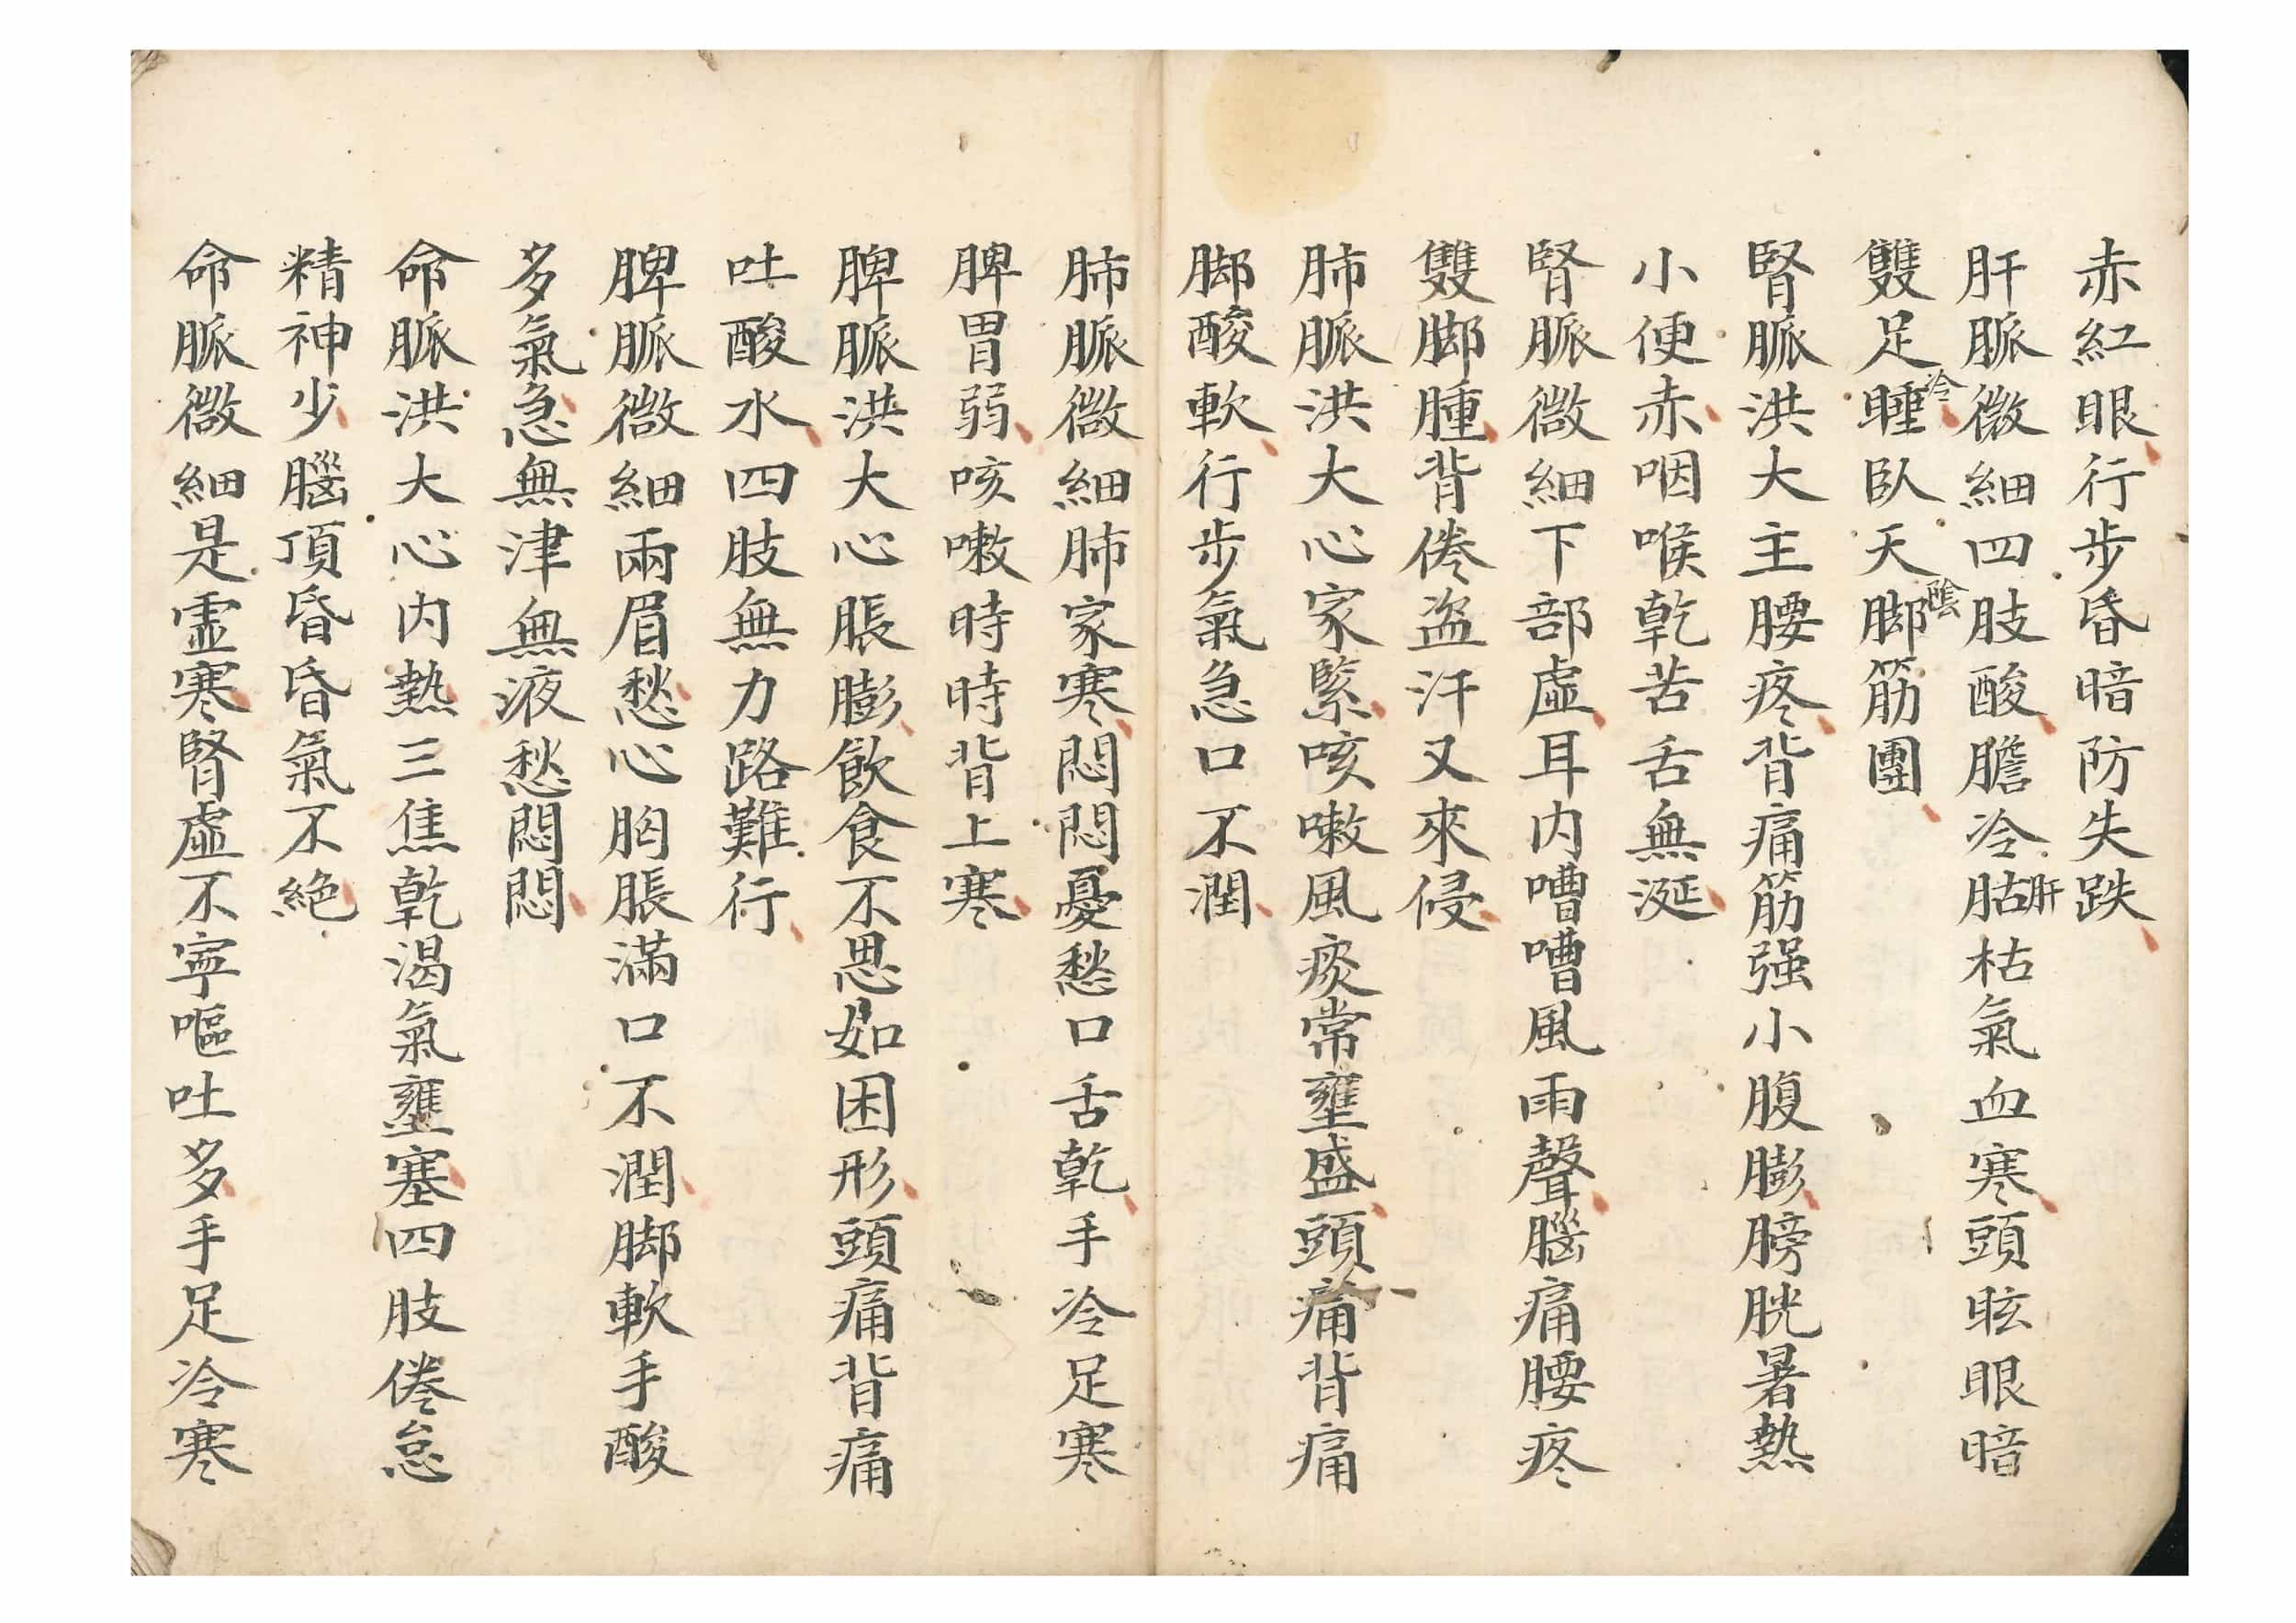 赤紅眼行步昏暗防失跌
肝脈微細四肢酸膽冷肝枯枯氣血寒頭眩眼暗
雙足冷睡臥天陰脚筋團
腎脈洪大主腰疼背痛筋强小腹膨膀胱暑熱
小便赤咽喉乾苦舌無涎
腎脈微細下部虛耳内嘈嘈風雨聲腦痛腰疼
雙脚腫背倦盗汗又來侵
肺脈洪大心家緊咳嗽風痰常壅盛頭痛背痛
脚酸軟行步氣急口不潤
肺脈微細肺家寒悶悶憂愁口舌乾手冷足寒
脾胃弱咳嗽時時背上寒
脾脈洪大心脹膨飲食不思如困形頭痛背痛
吐酸水四肢無力路難行
脾脈微細兩眉愁心胸脹滿口不潤脚軟手酸
多氣急無津無液愁悶悶
命脈洪大心内熱三焦乾渴氣壅塞四肢倦怠
精神少腦頂昏昏氣不絕
命脈微細是虛寒腎虛不寧嘔吐多手足冷寒